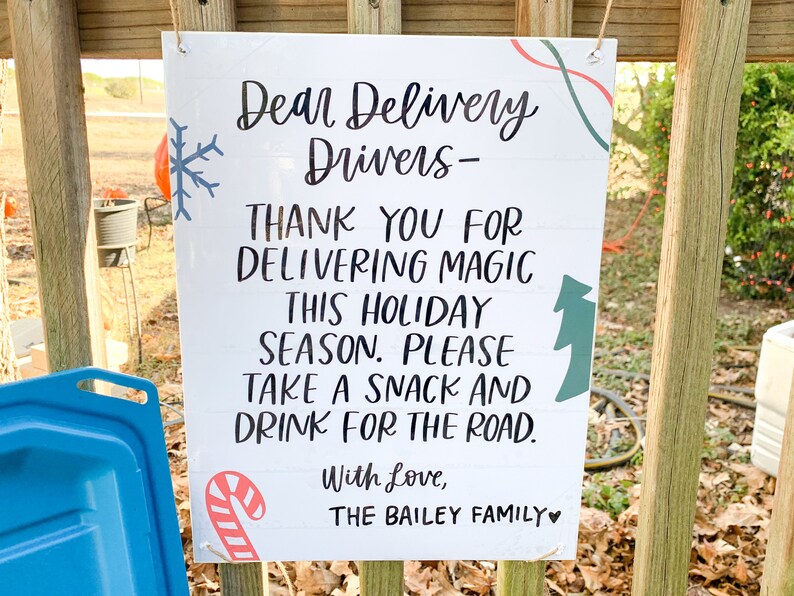 Dear Delivery
Drivers-
THANK YOU FOR
DELIVERING MAGIC
THIS HOLIDAY
SEASON. PLEASE
TAKE A SNACK AND
DRINK FOR THE ROAD.
With Love,
THE BAILEY FAMILY♥